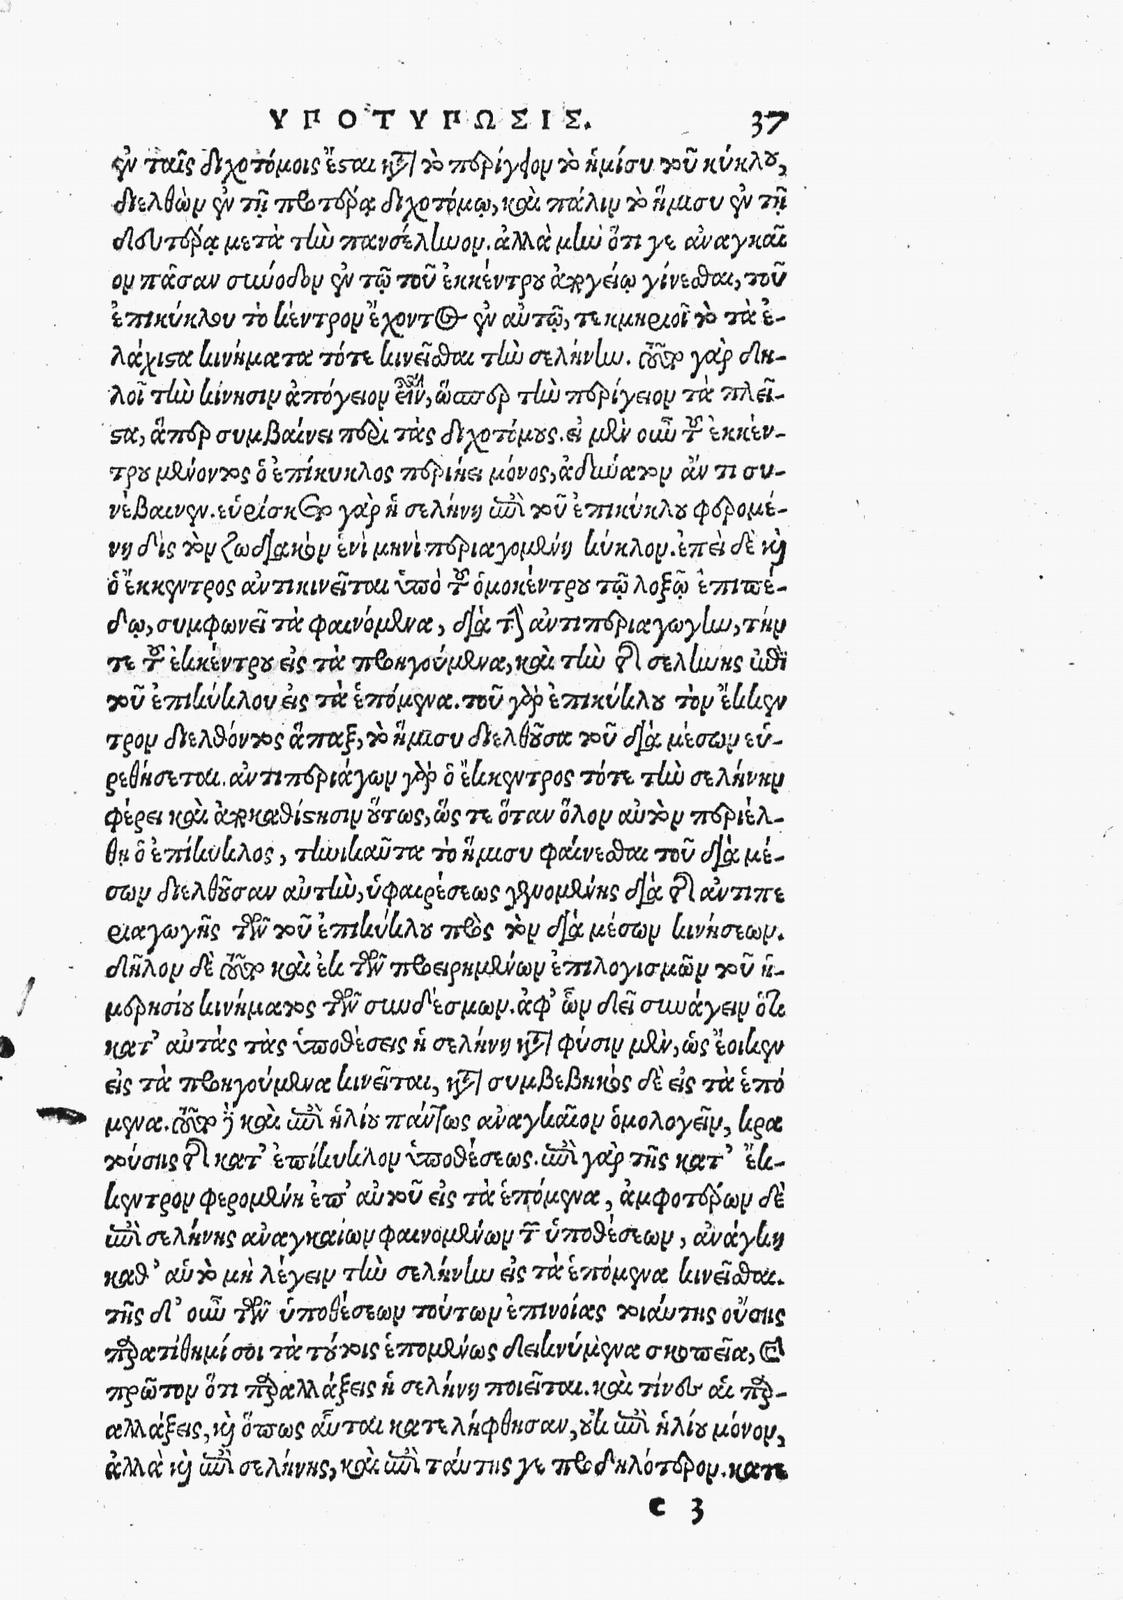 ΥΠΟΤΥΠΩΣΙΣ. 37
ἐν ταῖς διχοτόμοις ἔσται κατὰ τὸ περίγειον τὸ ἡμίσυ τοῦ κύκλου,
διελθὼν ἐν τῇ προτέρᾳ διχοτόμῳ, καὶ πάλιν τὸ ἥμισυ ἐν τῇ
δευτέρᾳ μετὰ τὴν πανσέληνον. ἀλλὰ μὴν ὅτι γε ἀναγκαῖ
ον πᾶσαν σύνοδον ἐν τῷ τοῦ ἐκκέντρου ἀπογείῳ γίνεσθαι, τοῦ
ἐπικύκλου τὸ κέντρον ἔχοντος ἐν αὐτῷ, τεκμηριοῖ τὸ τὰ ἐ-
λάχιστα κινήματα τότε κινεῖσθαι τὴν σελήνην. τοῦτο γὰρ δη-
λοῖ τὴν κίνησιν ἀπόγειον εἶναι, ὥσπερ τὴν περίγειον τὰ πλεῖ-
στα, ἅπερ συμβαίνει περὶ τὰς διχοτόμους. εἰ μὲν οὖν τοῦ ἐκκέν-
τρου μένοντος ὁ ἐπίκυκλος περιῄει μόνος, ἀδύνατον ἄν τι συ-
νέβαινεν. εὑρίσκετο γὰρ ἡ σελήνη ἐπὶ τοῦ ἐπικύκλου φερομέ-
νη δὶς τὸν ζωδιακὸν ἑνὶ μηνὶ περιαγομένη κύκλον. ἐπεὶ δὲ καὶ
ὁ ἔκκεντρος ἀντικινεῖται ὑπὸ τοῦ ὁμοκέντρου τῷ λοξῷ ἐπιπέ-
δῳ, συμφωνεῖ τὰ φαινόμενα, διὰ τὴν ἀντιπεριαγωγὴν, τήν
τε τοῦ ἐκκέντρου εἰς τὰ προηγούμενα, καὶ τὴν τῆς σελήνης ἐπὶ
τοῦ ἐπικύκλου εἰς τὰ ἑπόμενα. τοῦ γὰρ ἐπικύκλου τὸν ἔκκεν
τρον διελθόντος ἅπαξ, τὸ ἥμισυ διελθοῦσα τοῦ διὰ μέσων εὑ-
ρεθήσεται. ἀντιπεριάγων γὰρ ὁ ἔκκεντρος τότε τὴν σελήνην
φέρει καὶ ἀποκαθίστησιν οὕτως, ὥς τε ὅταν ὅλον αὐτὸν περιέλ-
θῃ ὁ ἐπίκυκλος, τηνικαῦτα τὸ ἥμισυ φαίνεσθαι τοῦ διὰ μέ-
σων διελθοῦσαν αὐτὴν, ὑφαιρέσεως γενομένης διὰ τῆς ἀντιπε
ριαγωγῆς τῶν τοῦ ἐπικύκλου πρὸς τὸν διὰ μέσων κινήσεων.
δῆλον δὲ τοῦτο καὶ ἐκ τῶν προειρημένων ἐπιλογισμῶν τοῦ ἡ-
μερησίου κινήματος τῶν συνδέσμων. ἀφ’ ὧν δεῖ συνάγειν ὅτι
κατ’ αὐτὰς τὰς ὑποθέσεις ἡ σελήνη κατὰ φύσιν μὲν, ὡς ἔοικεν
εἰς τὰ προηγούμενα κινεῖται, κατὰ συμβεβηκὸς δὲ εἰς τὰ ἑπό
μενα. τοῦτο δὴ καὶ ἐπὶ ἡλίου πάντως ἀναγκαῖον ὁμολογεῖν, κρα
τούσης τῆς κατ’ ἐπίκυκλον ὑποθέσεως. ἐπὶ γὰρ τῆς κατ’ ἔκ-
κεντρον φερομένη ἐπ’ αὐτοῦ εἰς τὰ ἑπόμενα, ἀμφοτέρων δὲ
ἐπὶ σελήνης ἀναγκαίων φαινομένων τῶν ὑποθέσεων, ἀνάγκη
καθ’ αὑτὸ μὴ λέγειν τὴν σελήνην εἰς τὰ ἑπόμενα κινεῖσθαι.
τῆς δ’ οὖν τῶν ὑποθέσεων τούτων ἐπινοίας τοιάυτης οὔσης
παρατίθημί σοι τὰ τούτοις ἑπομένως δεικνύμενα σκοπεῖα, καὶ
πρῶτον ὅτι παραλλάξεις ἡ σελήνη ποιεῖται. καὶ τίνες αἱ παρ-
αλλάξεις, καὶ ὅπως αὗται κατελήφθησαν, οὐκ ἐπὶ ἡλίου μόνον,
ἀλλὰ καὶ ἐπὶ σελήνης, καὶ ἐπὶ τάυτης γε προδηλότερον. κατε
c 3